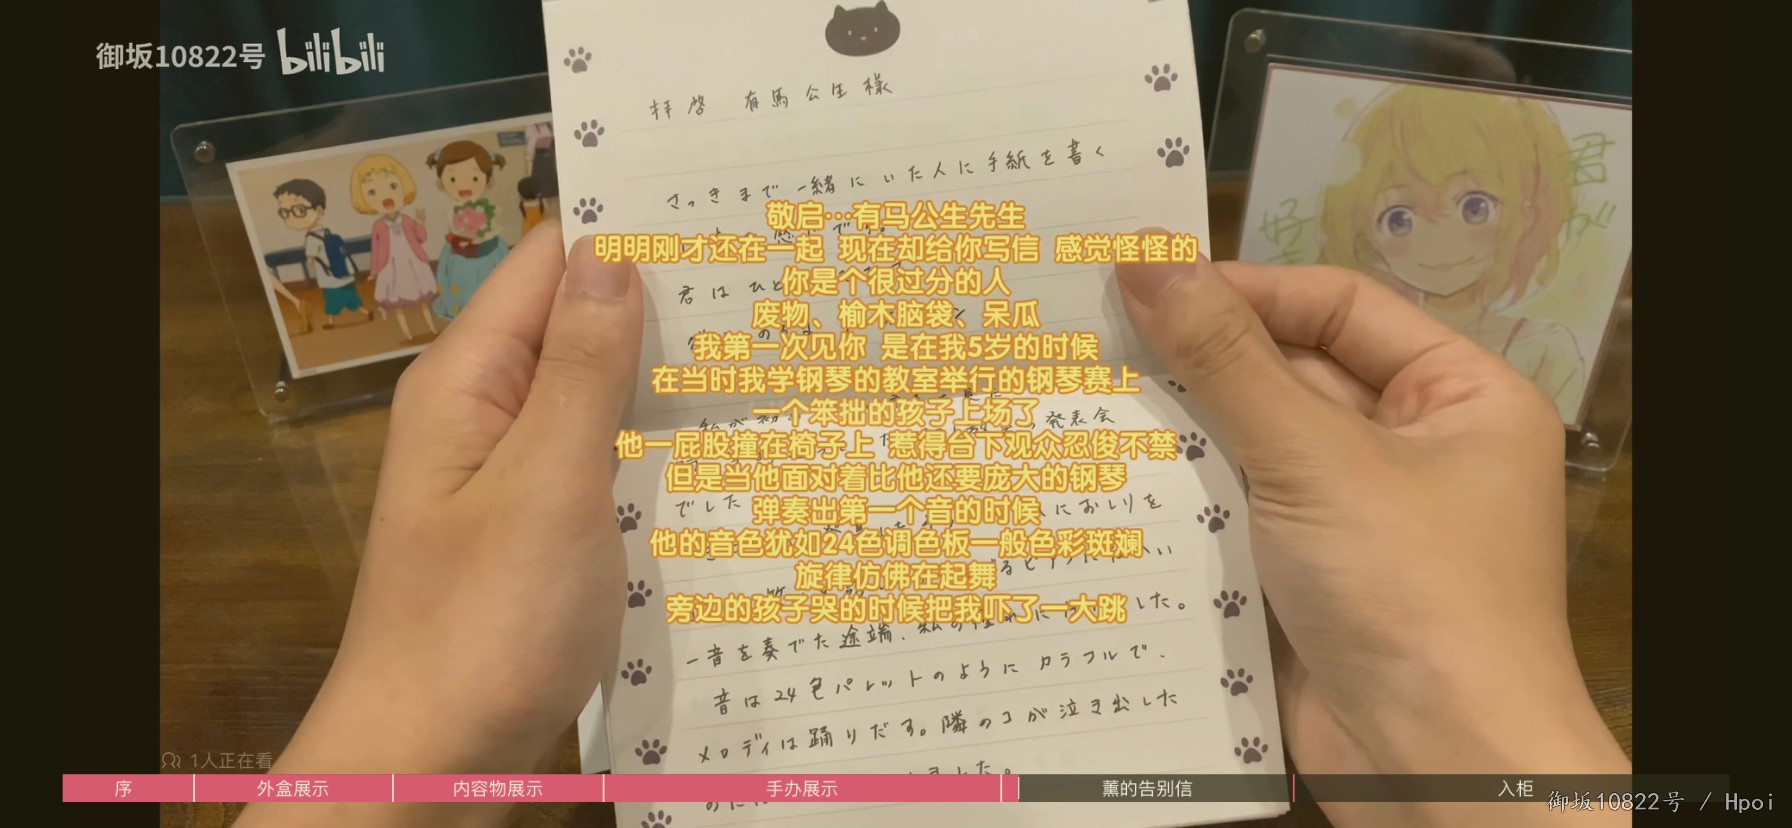 御坂10822号 bilibili
拝啓 有馬公生様
さっきまで一緒にいた人に手紙を書く
敬启…有马公生先生
明明刚才还在一起 现在却给你写信 感觉怪怪的
君はひと
你是个很过分的人
废物、榆木脑袋、呆瓜
我第一次见你 是在我5岁的时候
在当时我学钢琴的教室举行的钢琴赛上
一个笨拙的孩子上场了
発表会
他一屁股撞在椅子上 惹得台下观众忍俊不禁
但是当他面对着比他还要庞大的钢琴
でした
におしりを
弹奏出第一个音的时候
他的音色犹如24色调色板一般色彩斑斓
旋律仿佛在起舞
旁边的孩子哭的时候把我吓了一大跳
した。
一音を奏でた途端、私の
音は24色パレットのようにカラフルで、
メロディは踊りだす。隣のコが泣き出した
ました。
君が
好
1人正在看
序 外盒展示 内容物展示 手办展示 薰的告别信 入柜
御坂10822号 / Hpoi